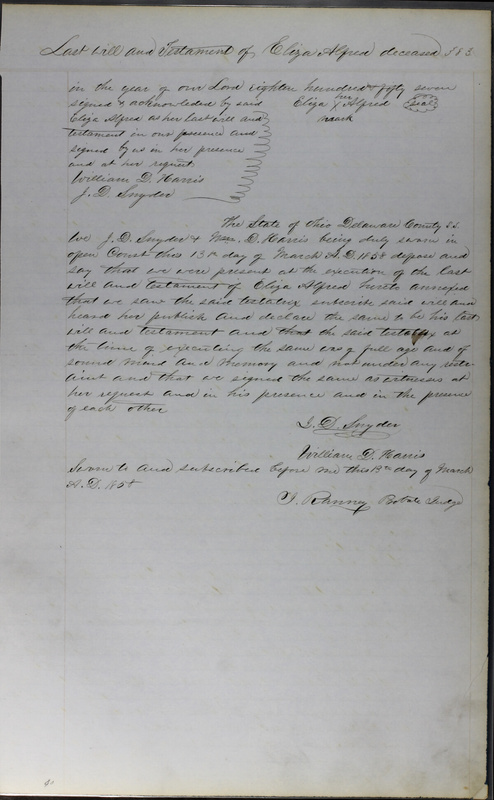 Last will and Testament of Eliza Alfred deceased 383
in the year of our Lord eighten hundred & fifty seven
signed & acknowledged by said Eliza her X mark Alfred seal
Eliza Alfred as her last will and
testament in our presence and
signed by us in her presence
and at her request
William D. Harris
J. D. Snyder
The State of Ohio Delaware County SS.
We J. D. Snyder & Wm. D. Harris being duly sworn in
open Court this 13th day of March A.D. 1858 depose and
say that we were present at the execution of the last
will and testament of Eliza Alfred hereto annexed
that we saw the said testatrix subscribe said will and
heard her publish and declare the same to be his last
will and testament and that the said testatrix at
the time of executing the same was of full age and of
sound mind and memory and not under any restr-
aint and that we signed the same as witnesses at
her request and in his presence and in the presence
of each other
J. D. Snyder
William D. Harris
Sworn to and subscribed before me this 13th day of March
A.D. 1858
Judge